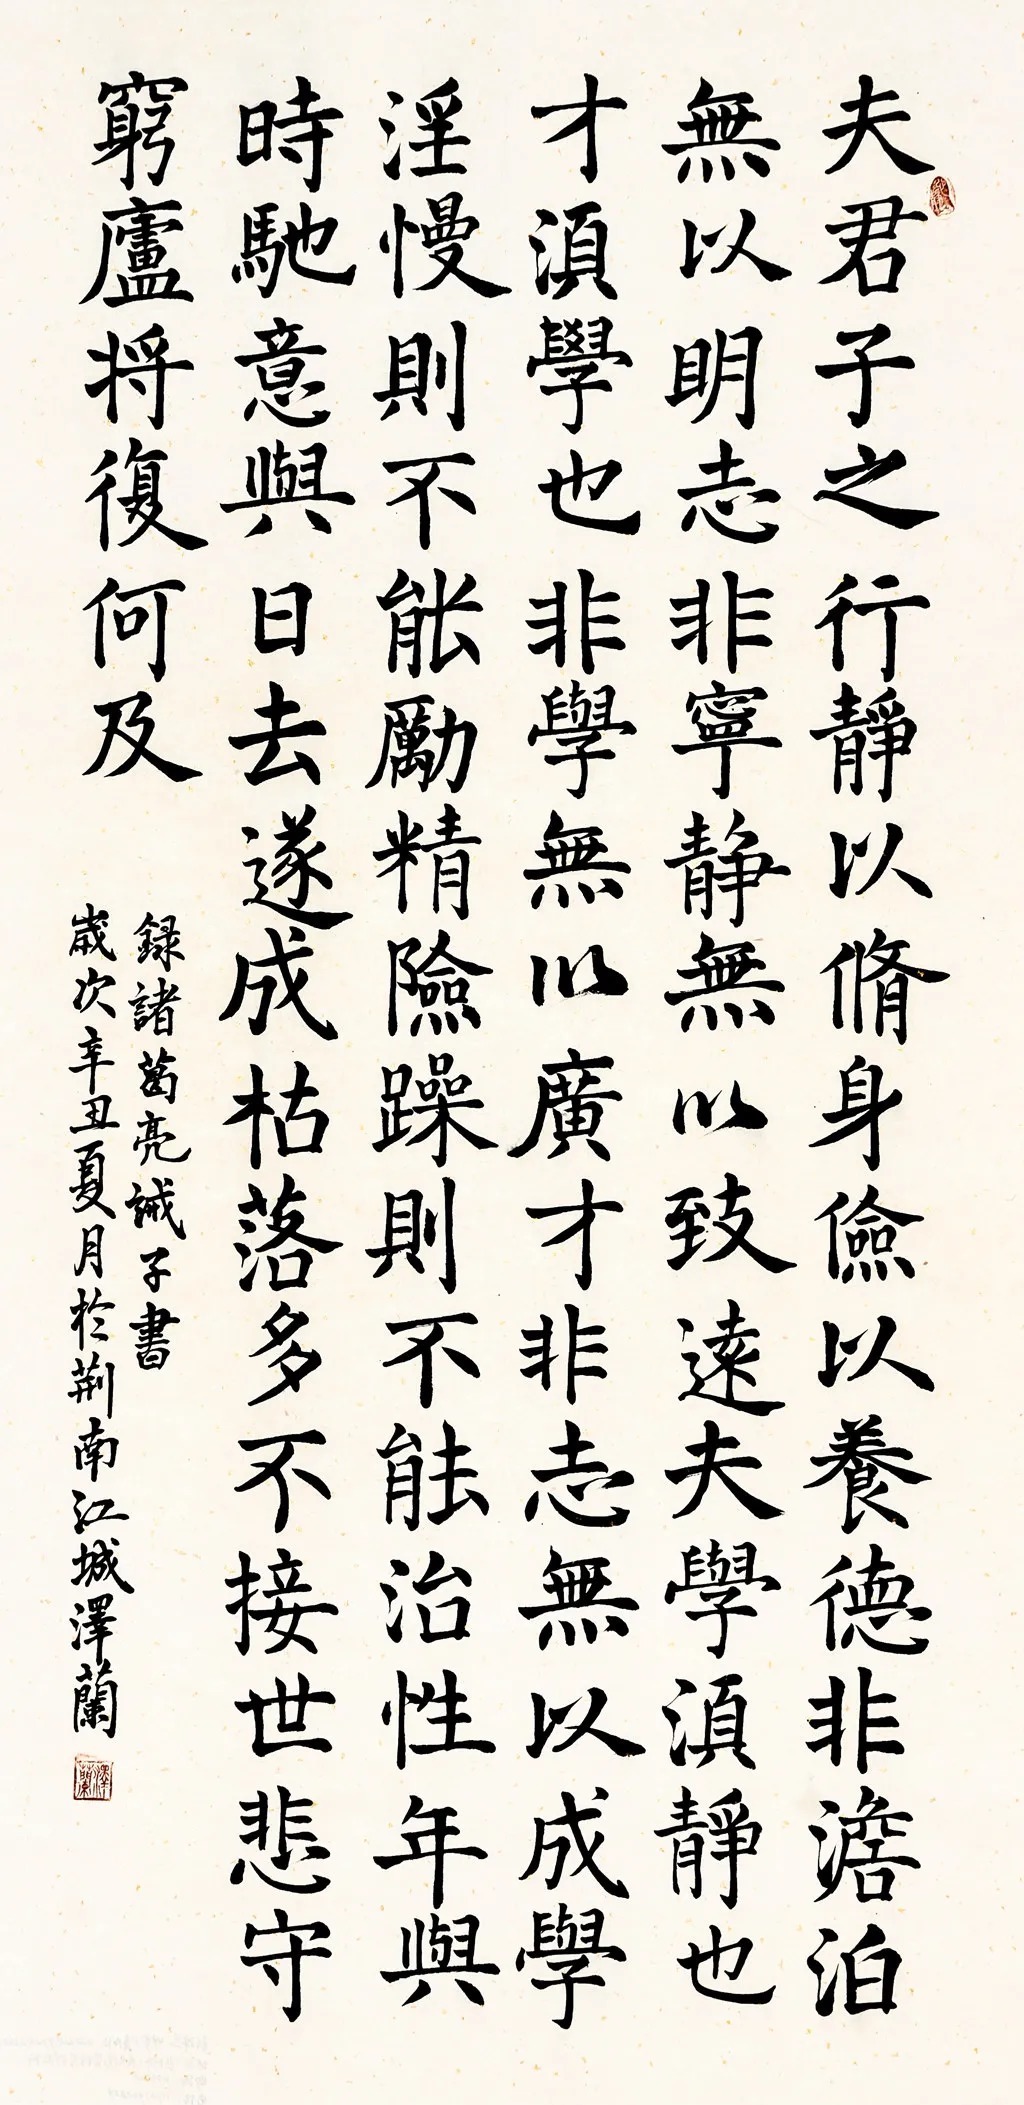 夫君子之行靜以脩身儉以養德非澹泊
無以明志非寧靜無以致遠夫學須靜也
才須學也非學無以廣才非志無以成學
淫慢則不能勵精險躁則不能治性年與
時馳意與日去遂成枯落多不接世悲守
窮廬将復何及
録諸葛亮誡子書
歲次辛丑夏月於荆南江城澤蘭
澤蘭